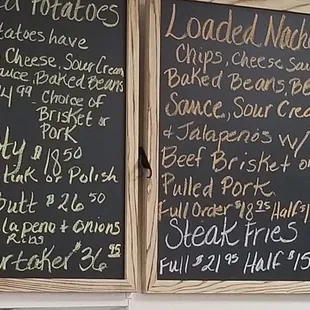 Potatoes
tatoes have
Cheese, Sour Cream
auce, Baked Beans
4.99
Choice of
Brisket or
Pork
ty $18.50
ink or Polish
utt $26.50
lapeno & Onions
Ribs
ertaker $36.95
Loaded Nach
Chips, Cheese Sau
Baked Beans, B
Sauce, Sour Crea
& Jalapeños w/
Beef Brisket o
Pulled Pork
Full Order $18.95 Half $1
Steak Fries
Full $21.95 Half $15